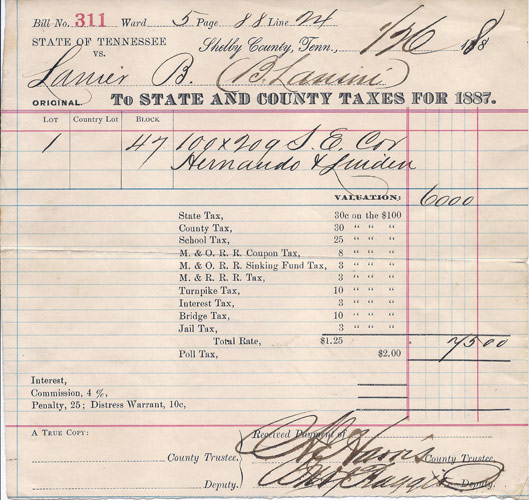 Bill No. 311 Ward 5 Page 88 Line 24
STATE OF TENNESSEE
vs.
Shelby County, Tenn., 1/26 188
Lanier B. (B. Lanini)
ORIGINAL. To STATE AND COUNTY TAXES FOR 1887.
LOT Country Lot BLOCK
1 47 100 x 209 S. E. Cor
Hernando & Linden
VALUATION: 6000
State Tax, 30c on the $100
County Tax, 30 " " "
School Tax, 25 " " "
M. & O. R. R. Coupon Tax, 8 " " "
M. & O. R. R. Sinking Fund Tax, 3 " " "
M. & R. R. R. Tax, 3 " " "
Turnpike Tax, 10 " " "
Interest Tax, 3 " " "
Bridge Tax, 10 " " "
Jail Tax, 3 " " "
Total Rate, $1.25 7500
Poll Tax, $2.00
Interest,
Commission, 4 %,
Penalty, 25; Distress Warrant, 10c,
A TRUE COPY: Received Payment of
County Trustee. Harris County Trustee.
Deputy. Deputy.